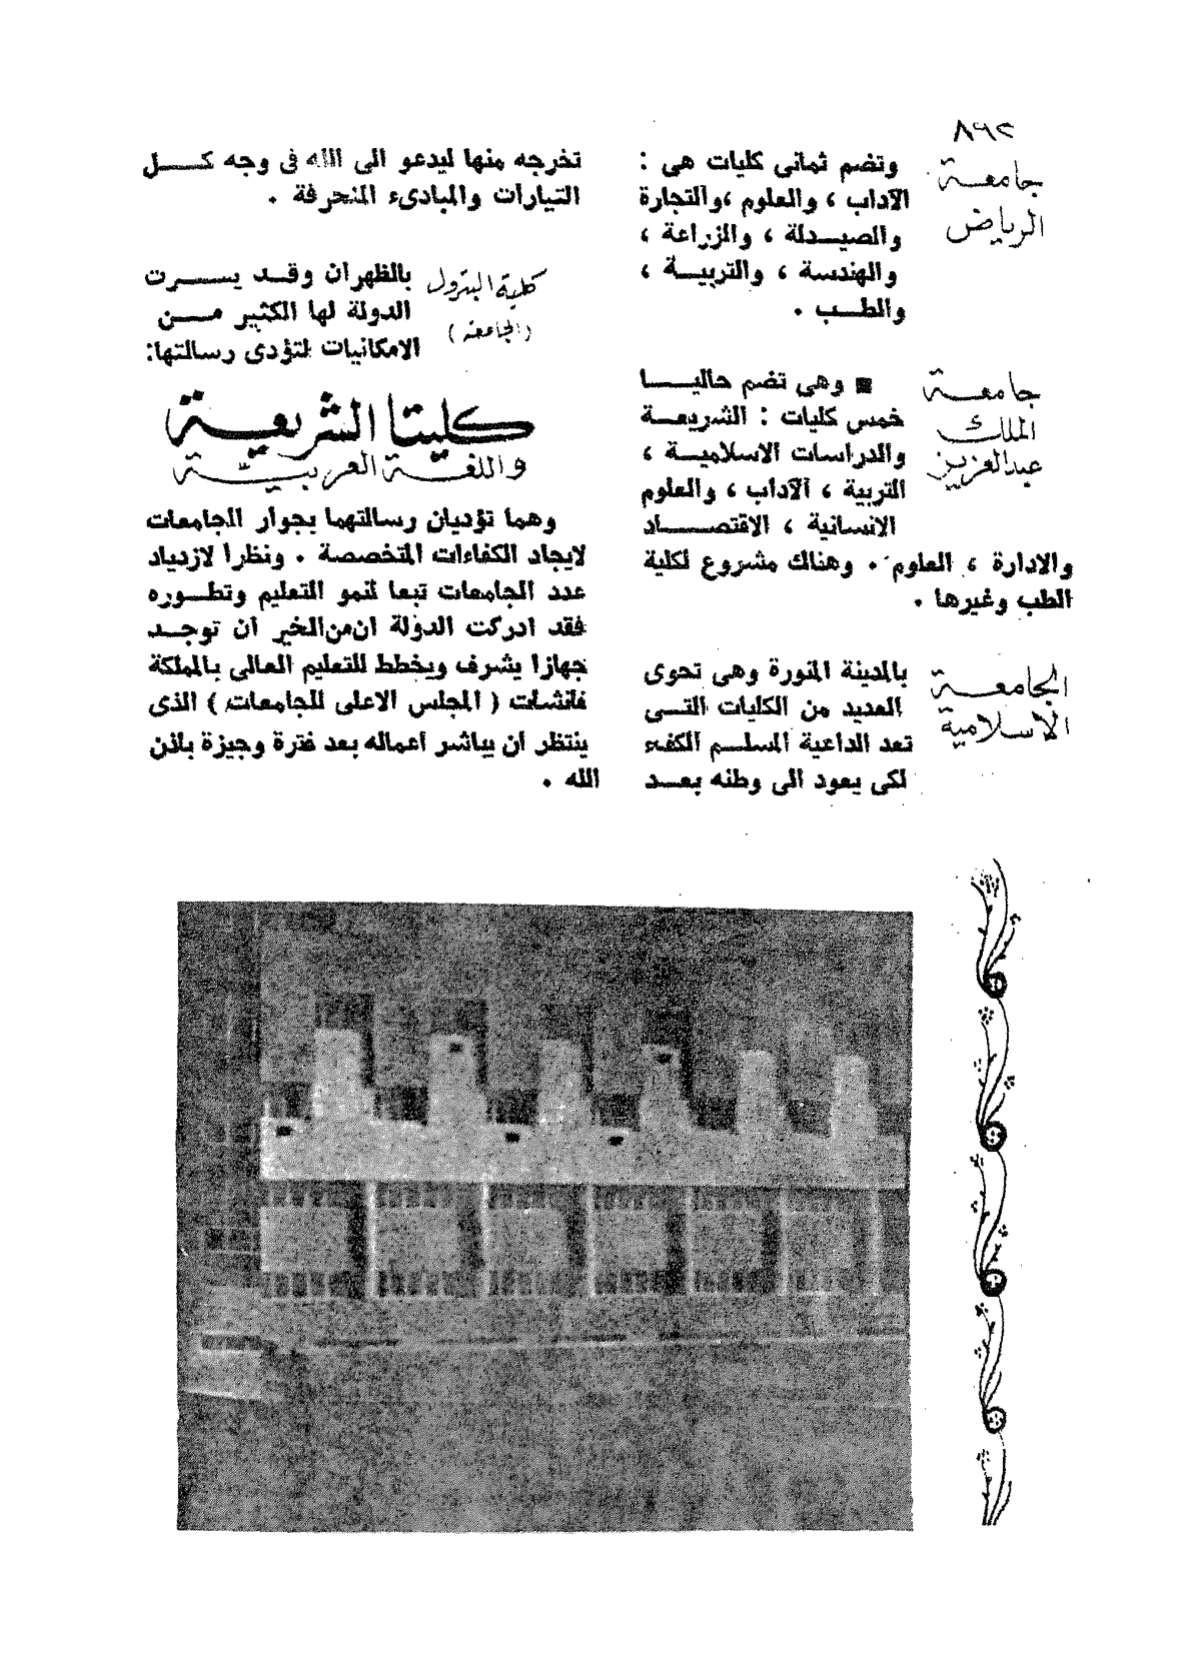 ٨٩٢
جامعة
الرياض
وتضم ثمانى كليات هى :
الآداب ، والعلوم ،والتجارة
والصيدلة ، والزراعة ،
والهندسة ، والتربية ،
والطب .
جامعة
الملك
عبدالعزيز
■ وهى تضم حاليا
خمس كليات : الشريعة
والدراسات الاسلامية ،
التربية ، الآداب ، والعلوم
الانسانية ، الاقتصاد
والادارة ، العلوم . وهناك مشروع لكلية
الطب وغيرها .
الجامعة
الاسلامية
بالمدينة المنورة وهى تحوى
العديد من الكليات التى
تعد الداعية المسلم الكفء
لكى يعود الى وطنه بعد
تخرجه منها ليدعو الى الله فى وجه كل
التيارات والمبادىء المنحرفة .
كلية البترول
(الجامعة)
بالظهران وقد يسرت
الدولة لها الكثير من
الامكانيات لتؤدى رسالتها:
كليتا الشريعة
واللغة العربية
وهما تؤديان رسالتهما بجوار الجامعات
لايجاد الكفاءات المتخصصة . ونظرا لازدياد
عدد الجامعات تبعا لنمو التعليم وتطوره
فقد ادركت الدولة ان من الخير ان توجد
جهازا يشرف ويخطط للتعليم العالى بالمملكة
فانشات ( المجلس الاعلى للجامعات ) الذى
ينتظر ان يباشر اعماله بعد فترة وجيزة باذن
الله .